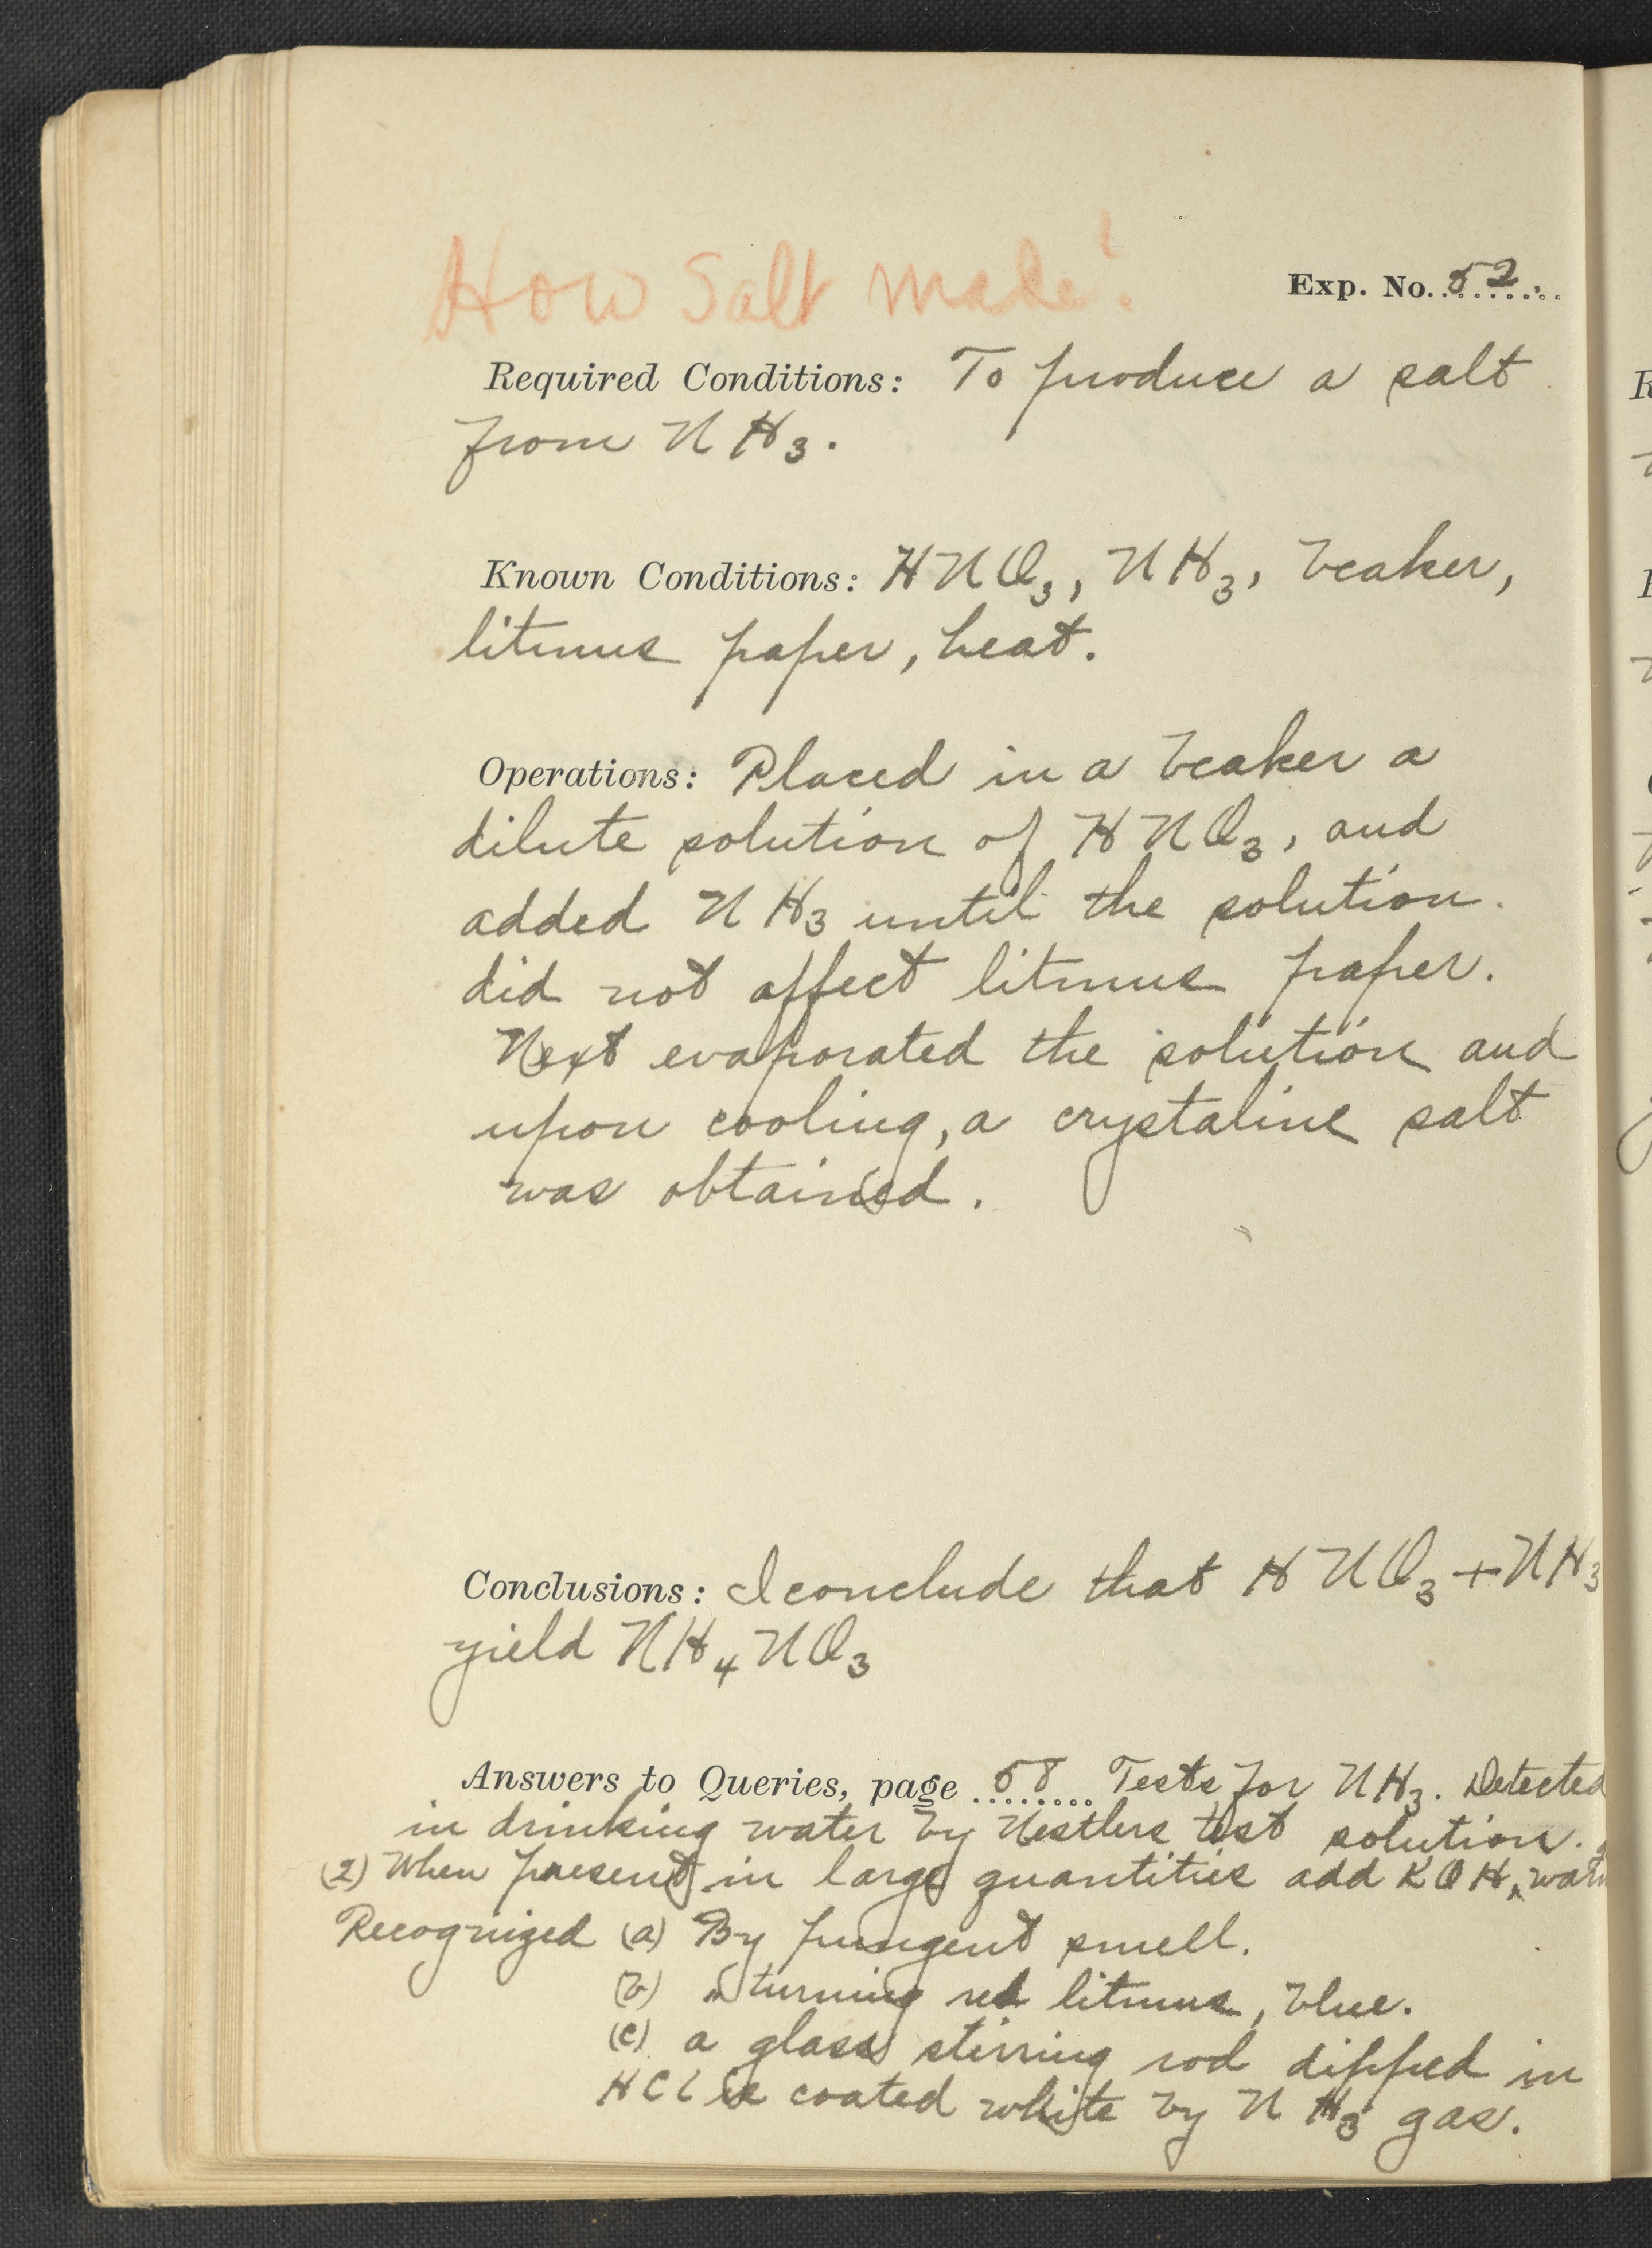 How Salt made?
Exp. No. 52.
Required Conditions: To produce a salt
from NH3.
Known Conditions: HNO3, NH3, beaker,
litmus paper, heat.
Operations: Placed in a beaker a
dilute solution of HNO3, and
added NH3 until the solution
did not affect litmus paper.
Next evaporated the solution and
upon cooling, a crystaline salt
was obtained.
Conclusions: I conclude that HNO3 + NH3
yield NH4NO3
Answers to Queries, page 58 Tests for NH3. Detected
in drinking water by Nestlers test solution.
(2) When present in large quantities add KOH, warm
Recognized (a) By pungent smell.
(b) turning red litmus, blue.
(c) a glass stirring rod dipped in
HCl is coated white by NH3 gas.